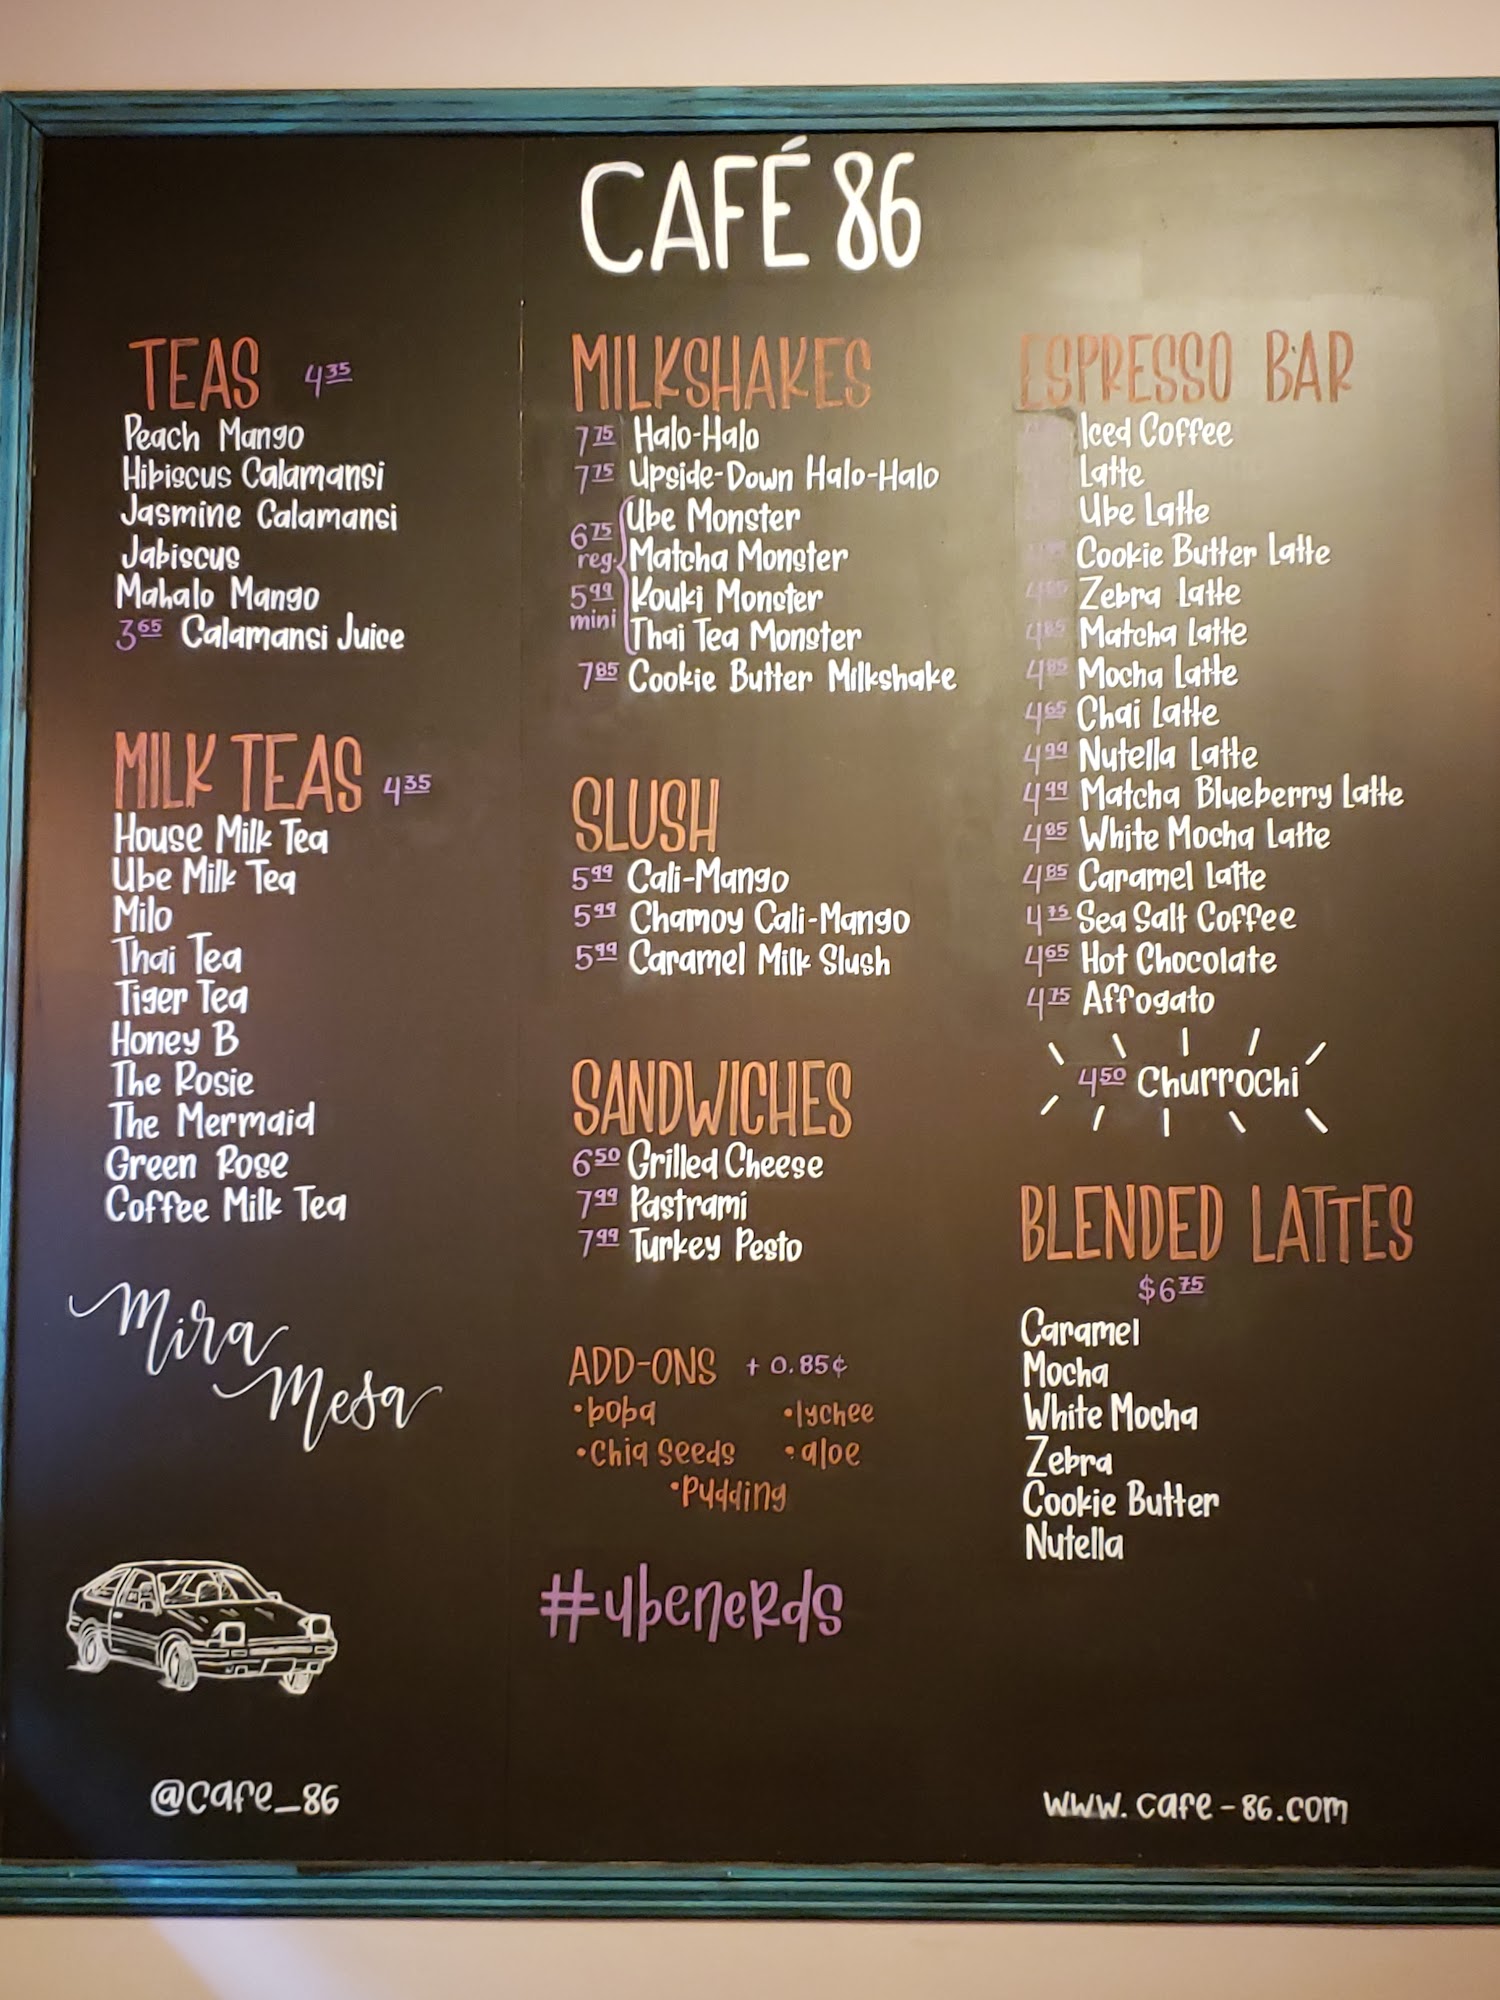 CAFÉ 86
TEAS 4.35
Peach Mango
Hibiscus Calamansi
Jasmine Calamansi
Jabiscus
Mahalo Mango
3.65 Calamansi Juice
MILK TEAS 4.35
House Milk Tea
Ube Milk Tea
Milo
Thai Tea
Tiger Tea
Honey B
The Rosie
The Mermaid
Green Rose
Coffee Milk Tea
Mira
Mesa
@cafe_86
MILKSHAKES
7.75 Halo-Halo
7.75 Upside-Down Halo-Halo
6.75 Ube Monster
reg. Matcha Monster
5.99 Kouki Monster
mini Thai Tea Monster
7.85 Cookie Butter Milkshake
SLUSH
5.99 Cali-Mango
5.99 Chamoy Cali-Mango
5.99 Caramel Milk Slush
SANDWICHES
6.50 Grilled Cheese
7.99 Pastrami
7.99 Turkey Pesto
ADD-ONS + 0.85¢
•boba •lychee
•Chia Seeds •aloe
•Pudding
#ubenerds
ESPRESSO BAR
Iced Coffee
Latte
Ube Latte
Cookie Butter Latte
Zebra Latte
4.85 Matcha Latte
4.85 Mocha Latte
4.65 Chai Latte
4.99 Nutella Latte
4.99 Matcha Blueberry Latte
4.85 White Mocha Latte
4.85 Caramel Latte
4.75 Sea Salt Coffee
4.65 Hot Chocolate
4.75 Affogato
4.50 Churrochi
BLENDED LATTES
$6.75
Caramel
Mocha
White Mocha
Zebra
Cookie Butter
Nutella
www.cafe-86.com